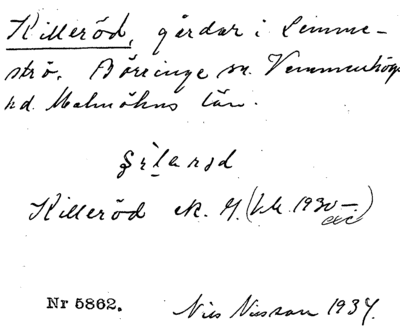 Killeröd, gårdar i Lemme-
strö. Börringe sn. Vemmenhögs
hd. Malmöhus län.
Killeröd ek. K. (bl. 1930-
Nr 5862.
Nils Nilsson 1934.